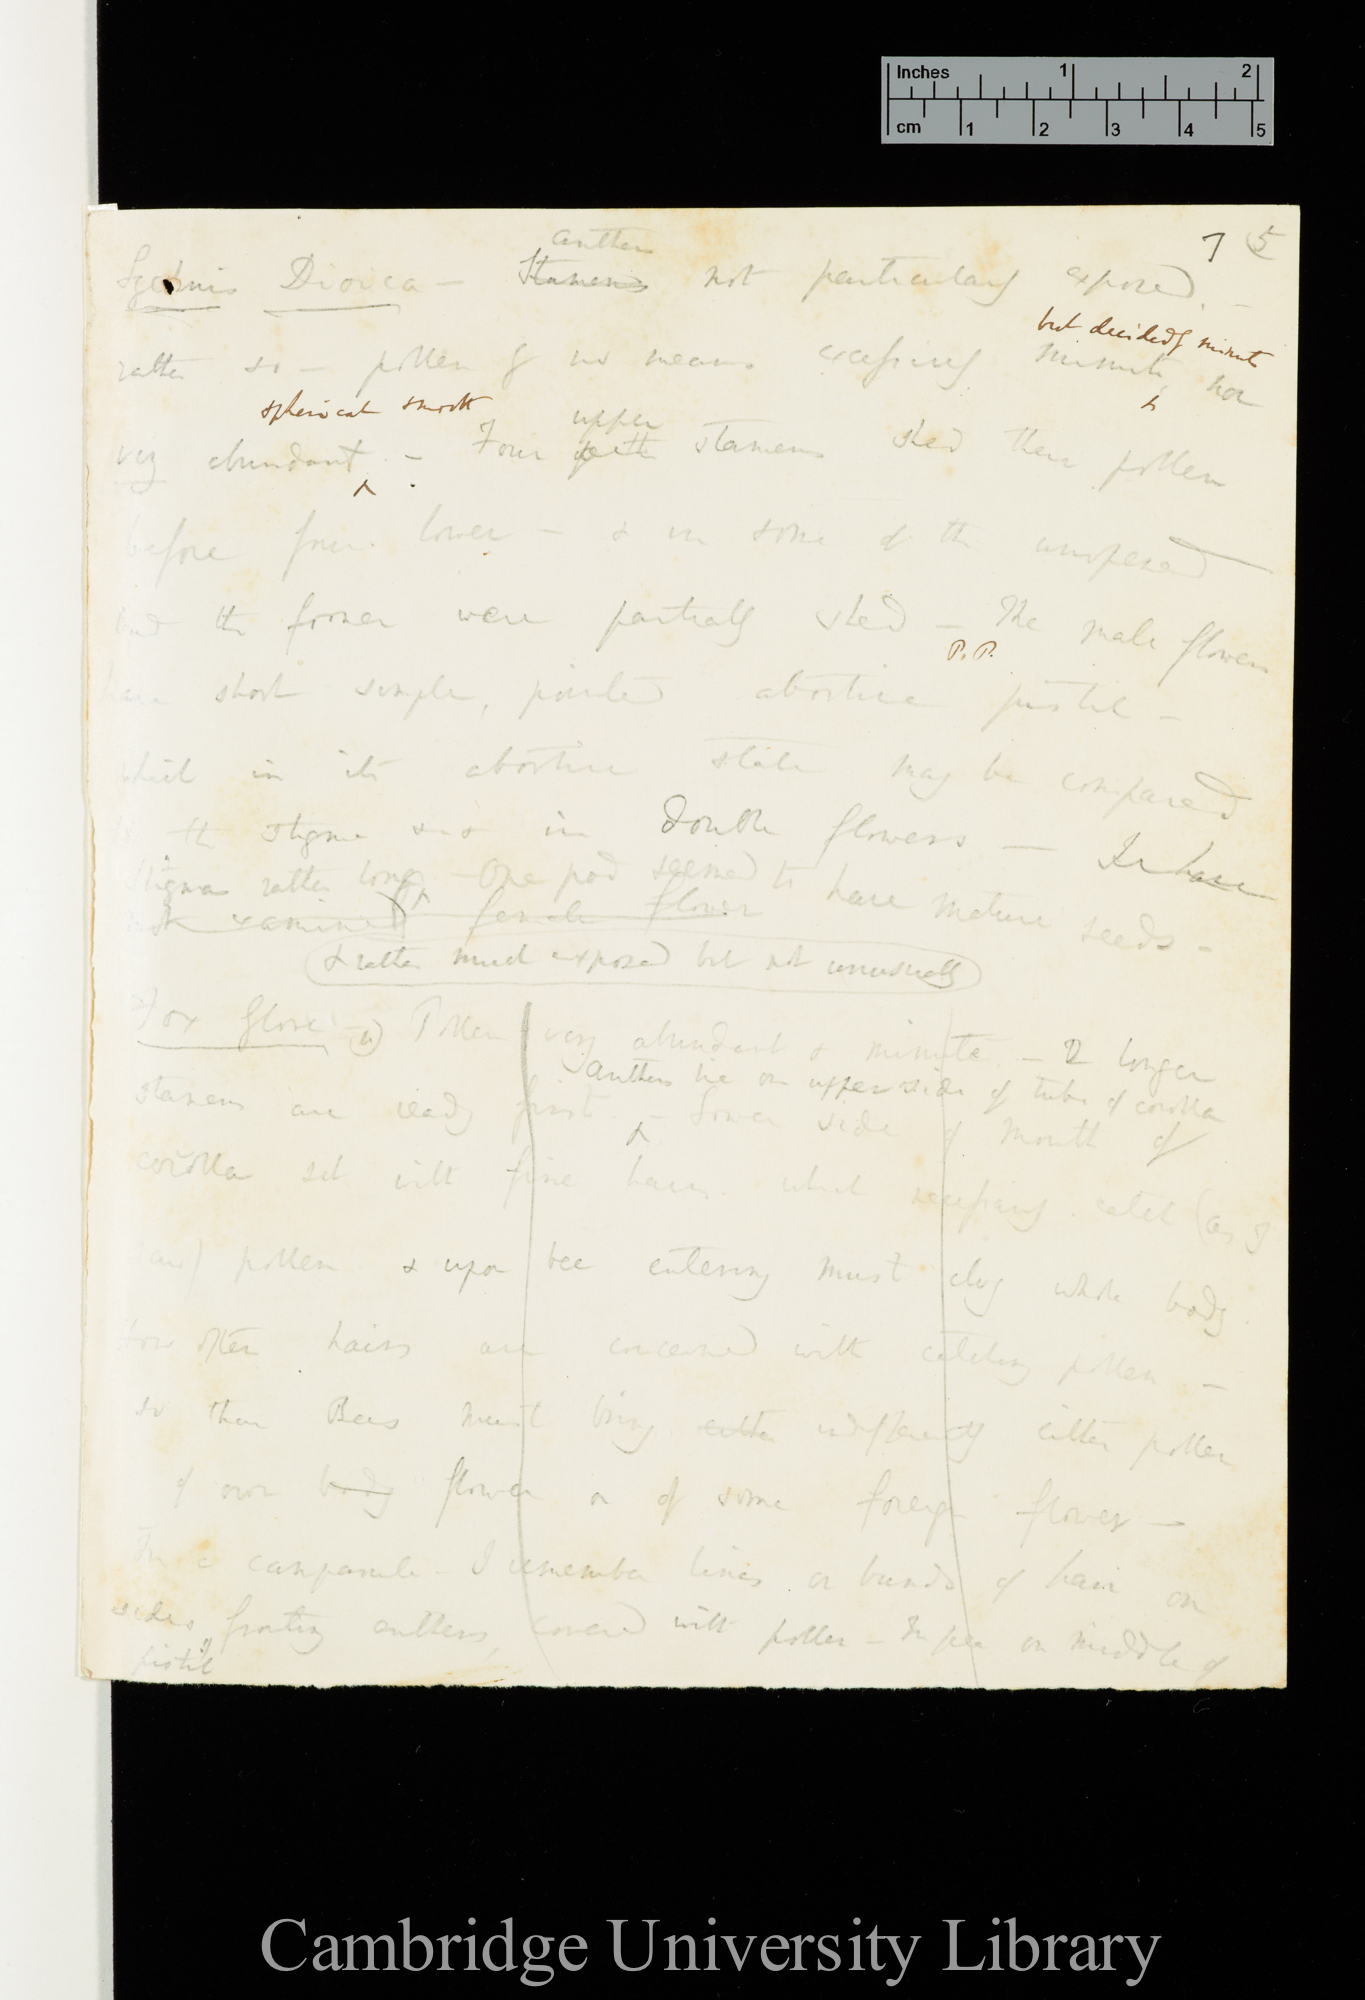 Inches 1 2
cm 1 2 3 4 5
7 (5
anthers
Lychnis Dioica — Stamens not particularly exposed. —
but decidedly minute
rather so — pollen by no means excessively minute, nor
spherical smooth upper
very abundant. — Four stamens shed their pollen
before four lower — & in some of the unopened
bud the former were partially shed — The male flowers
P. P.
have short simple, pointed abortive pistil —
which in its abortive state may be compared
to the stigma in double flowers — I have
Stigmas rather long — One pod seemed to have mature seeds —
not examined female flower
& rather much exposed but not unusually
Fox Glove Pollen very abundant & minute. — 2 longer
anthers lie on upper side of tube of corolla
stamens are ready first. — Lower side of mouth of
corolla set with fine hairs. which necessarily catch (as I
saw) pollen & upon bee entering must clog whole body.
How often hairs are concerned with catching pollen —
so that Bees must bring either indifferently either pollen
of own body flower or of some foreign flower —
In a campanula — I remember lines or bands of hair on
sides fronting anthers, covered with pollen — In pea on middle of
pistil
Cambridge University Library